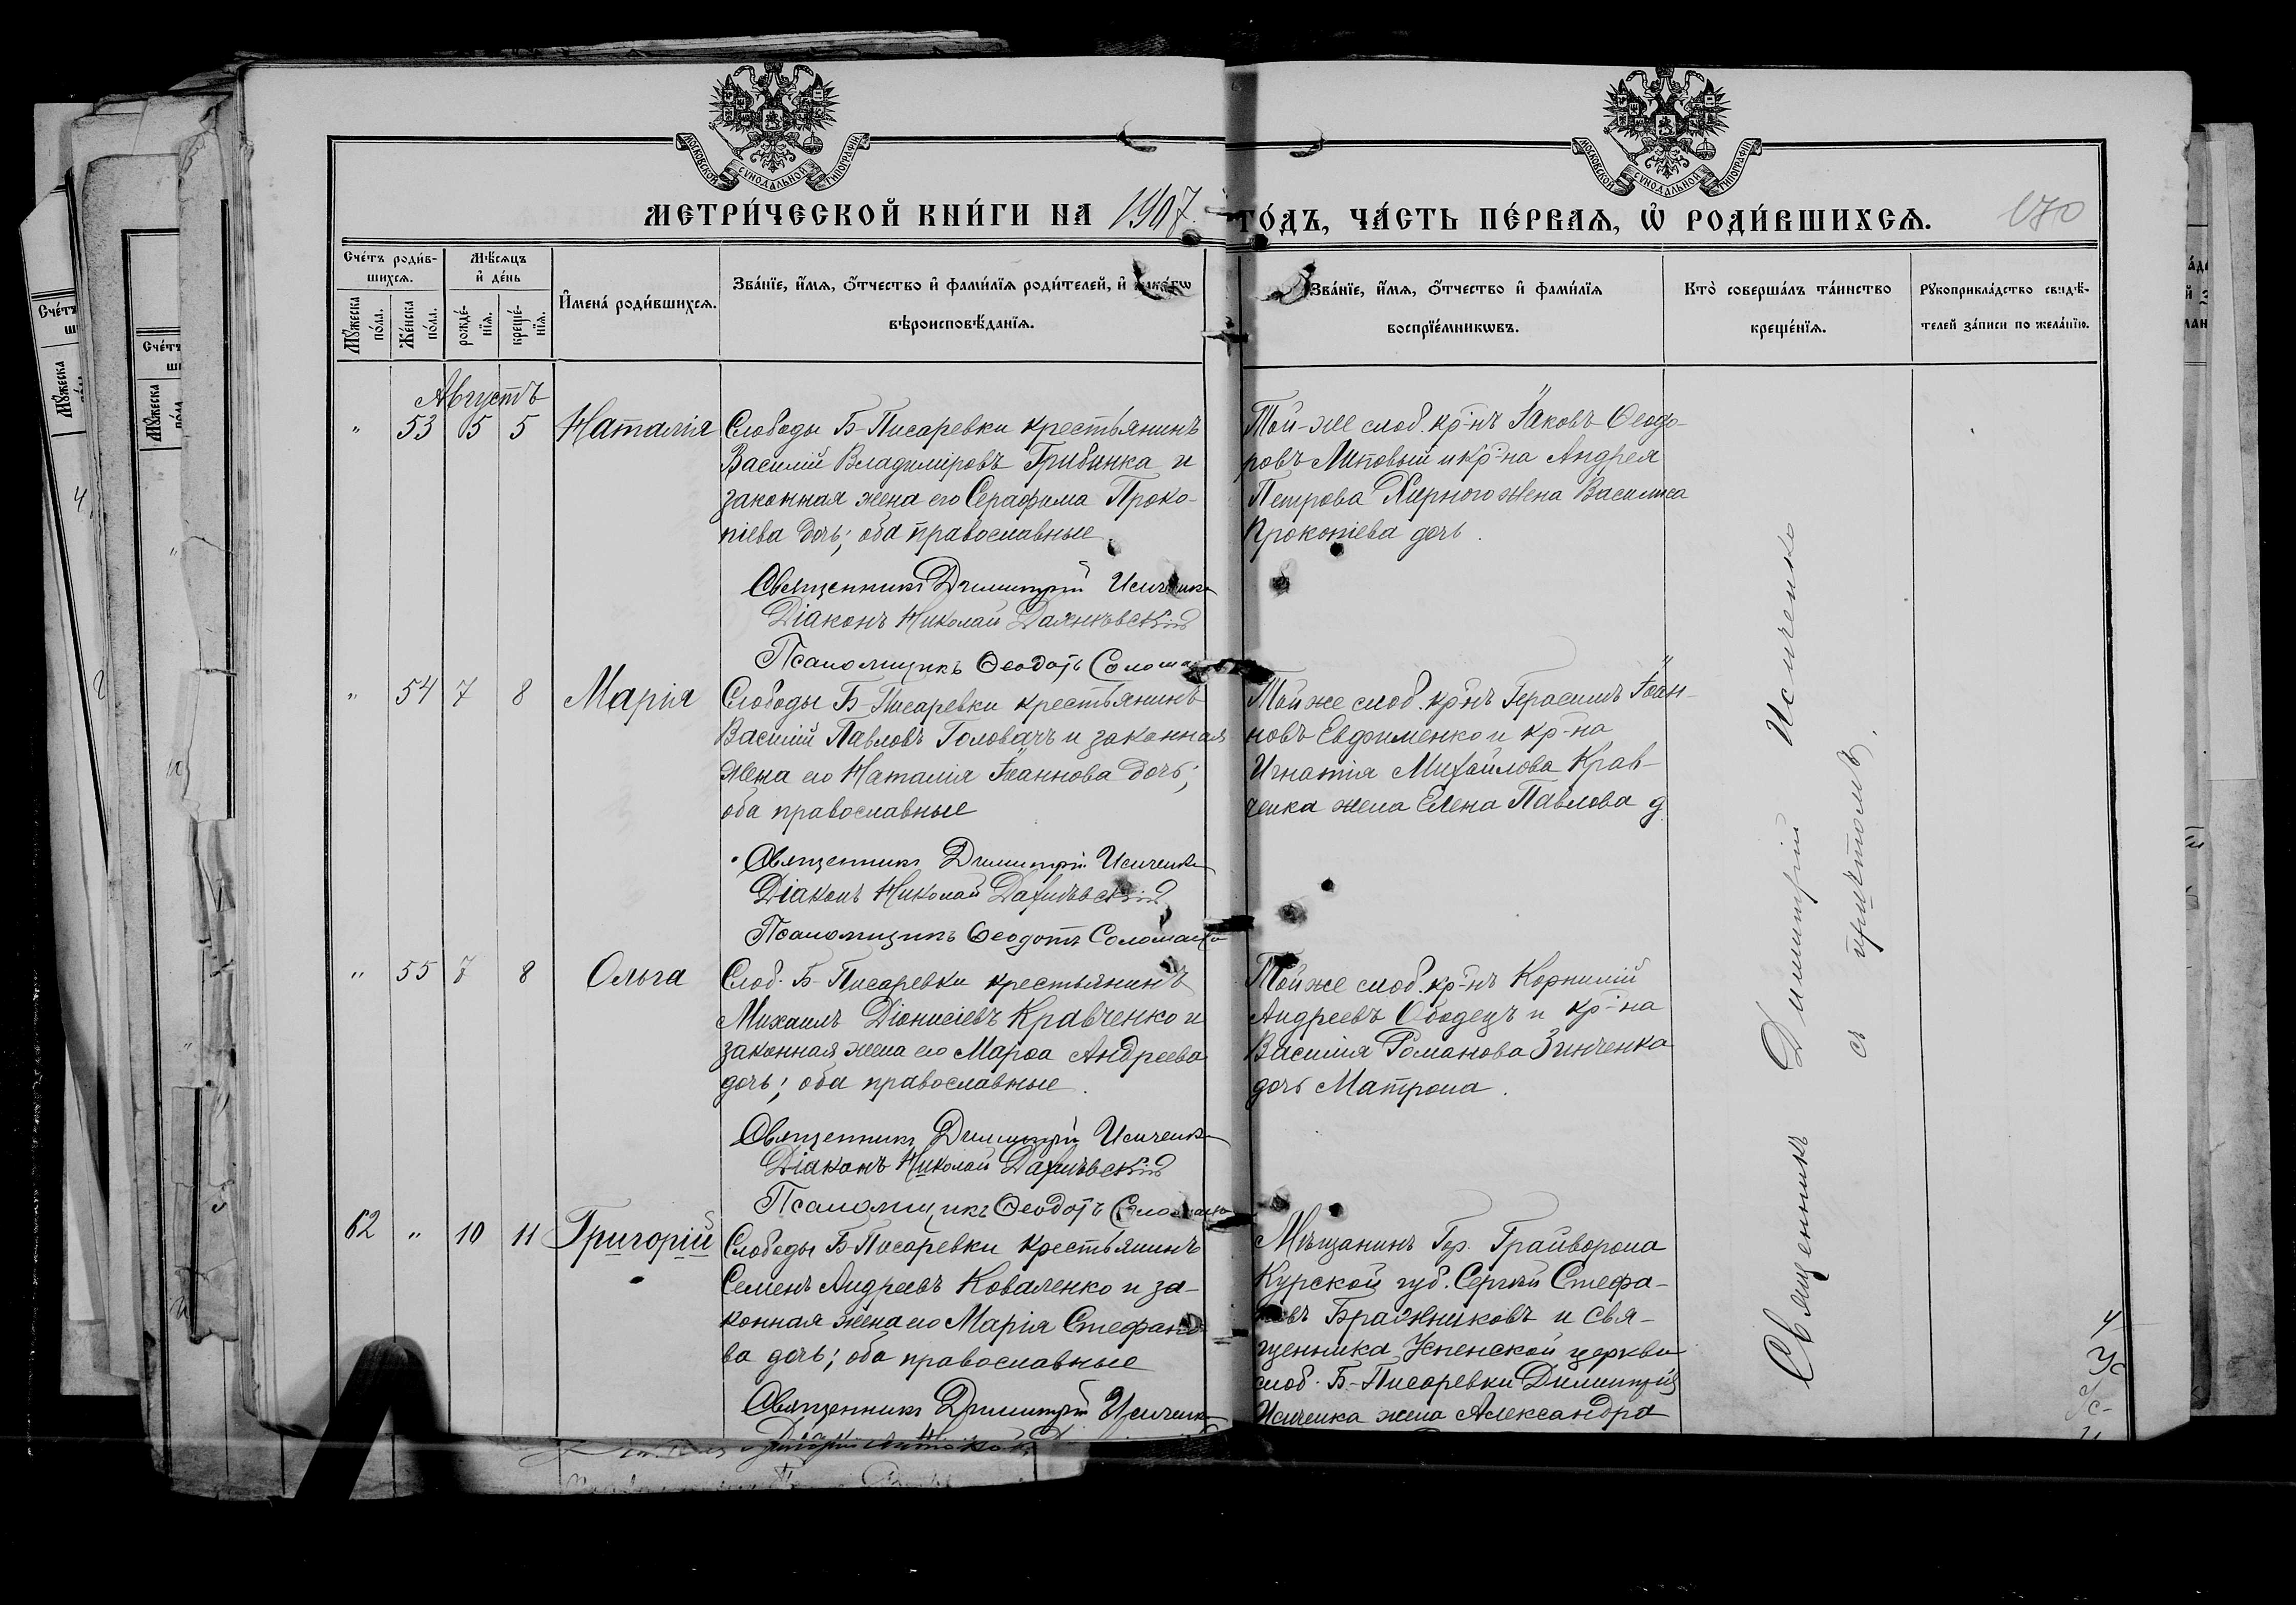 МОСКОВСКОЙ СѴНОДАЛЬНОЙ ТИПОГРАФІИ
МОСКОВСКОЙ СѴНОДАЛЬНОЙ ТИПОГРАФІИ
МЕТРИ́ЧЕСКОЙ КНИ́ГИ НА 1907. ГО́ДЪ, ЧА́СТЬ ПЕ́РВАЯ, Ѡ҆ РОДИ́ВШИХСЯ.
170
Сче́тъ роди́в-
шихся.
Мѣ́сяцъ
и҆ де́нь
Мꙋ́жеска по́ла.
Же́нска по́ла.
рожде́-нїя.
креще́-нїя.
И҆мена̀ роди́вшихся.
Зва́нїе, и҆́мя, ѻ҆́тчество и҆ фами́лїя роди́телей, и҆ како́гѡ
вѣроисповѣ́данїя.
Зва́нїе, и҆́мя, ѻ҆́тчество и҆ фами́лїя
воспрїе́мникѡвъ.
Кто̀ соверша́лъ та́инство
креще́нїя.
Рꙋкоприкла́дство свидѣ́-
телей за́писи по жела́нїю.
Августъ
" 53 5 5 Наталія
Слободы Б-Писаревки крестьянинъ
Василій Владиміровъ Грибинка и
законная жена его Серафима Проко-
піева дочь; оба православные
Священникъ Димитрій Исиченко
Діаконъ Николай
Псаломщикъ Ѳеодотъ
Той-же слоб. кр-нъ Іаковъ Ѳеодо-
ровъ Липовый и кр-на Андрея
Петрова Жирного жена Василиса
Прокопіева дочь.
" 54 7 8 Марія
Слободы Б-Писаревки крестьянинъ
Василій Павловъ Головачъ и законная
жена его Наталія Іоаннова дочь;
оба православные
Священникъ Димитрій Исиченко
Діаконъ Николай
Псаломщикъ Ѳеодотъ
Той же слоб. кр-нъ Герасимъ Іоан-
новъ Евфименко и кр-на
Игнатія Михайлова Крав-
ченка жена Елена Павлова д
" 55 7 8 Ольга
Слоб. Б-Писаревки крестьянинъ
Михаилъ Діонисіевъ Кравченко и
законная жена его Марѳа Андреева
дочь; оба православные.
Священникъ Димитрій Исиченко
Діаконъ Николай
Псаломщикъ Ѳеодотъ
Той же слоб. кр-нъ Корнилій
Андреевъ Ободецъ и кр-на
Василія Романова Зинченка
дочь Матрона.
62 " 10 11 Григорій
Слободы Б-Писаревки крестьянинъ
Семенъ Андреевъ Коваленко и за-
конная жена его Марія Стефано-
ва дочь; оба православные
Священникъ Димитрій Исиченко
Мѣщанинъ Гор. Грайворона
Курской губ. Сергѣй Стефа-
новъ Бражниковъ и свя-
щенника Успенской церкви
слоб. Б-Писаревки Димитрія
Исиченка жена Александра
Священникъ Димитрій Исиченко
съ причтомъ.